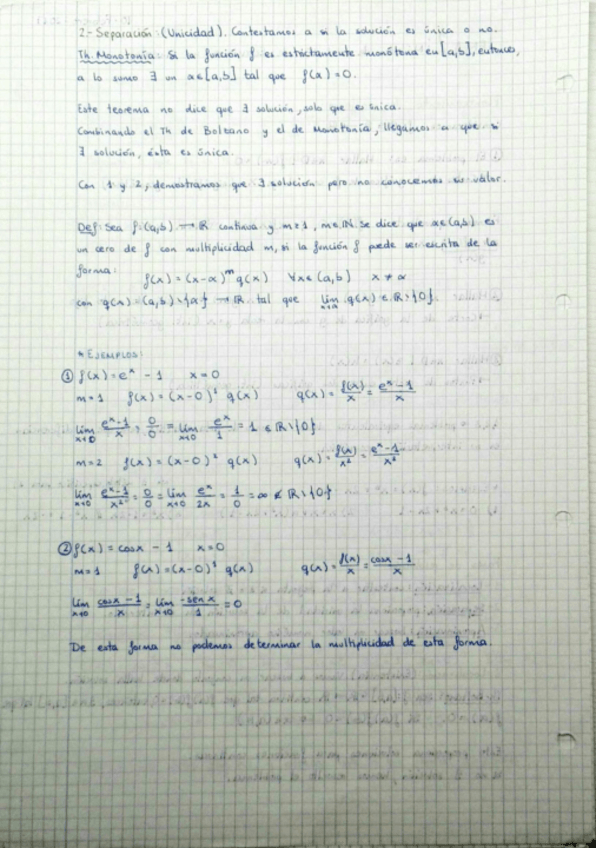 2- Separación (Unicidad). Contestamos a si la solución es única o no.
Th. Monotonía: Si la función f es estrictamente monótona en [a,b], entonces,
a lo sumo ∃ un α∈[a,b] tal que f(α)=0.
Este teorema no dice que ∃ solución, solo que es única.
Combinando el Th de Bolzano y el de Monotonía, llegamos a que si
∃ solución, ésta es única.
Con 1 y 2, demostramos que ∃ solución pero no conocemos su valor.
Def: Sea f: (a,b) → ℝ continua y m≥1, m∈ℕ. Se dice que α∈(a,b) es
un cero de f con multiplicidad m, si la función f puede ser escrita de la
forma:
f(x) = (x-α)^m q(x) ∀x∈(a,b) x≠α
con q(x) = (a,b)\{α} → ℝ tal que lim x→α q(x) ∈ ℝ\{0}.
* EJEMPLOS:
① f(x) = e^x - 1 x=0
m=1 f(x) = (x-0)^1 q(x) q(x) = f(x)/x = (e^x-1)/x
lim x→0 (e^x-1)/x = 0/0 = lim x→0 e^x/1 = 1 ∈ ℝ\{0}
m=2 f(x) = (x-0)^2 q(x) q(x) = f(x)/x^2 = (e^x-1)/x^2
lim x→0 (e^x-1)/x^2 = 0/0 = lim x→0 e^x/2x = 1/0 = ∞ ∉ ℝ\{0}
② f(x) = cosx - 1 x=0
m=1 f(x) = (x-0)^1 q(x) q(x) = f(x)/x = (cosx-1)/x
lim x→0 (cosx-1)/x = lim x→0 -senx/1 = 0
De esta forma no podemos determinar la multiplicidad de esta forma.